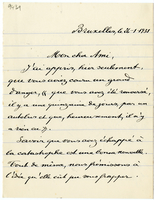 Bruxelles, le 26-1-1931
Mon cher Ami,
J'ai appris, hier seulement,
que vous aviez couru un grand
danger, & que vous aviez été renversé,
il y a une quinzaine de jours, par un
autobus et que, heureusement, il n'y
a rien eu
Savoir que vous avez échappé à
la catastrophe est une bonne nouvelle
tout de même, nous frémissons à
l'idée qu'elle eût pu vous frapper.